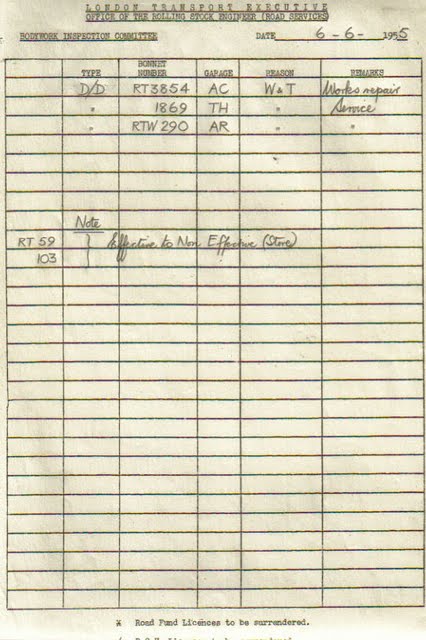 LONDON TRANSPORT EXECUTIVE
OFFICE OF THE ROLLING STOCK ENGINEER (ROAD SERVICES)
BODYWORK INSPECTION COMMITTEE DATE 6-6-1955
TYPE BONNET NUMBER GARAGE REASON REMARKS
D/D RT3854 AC W&T Works repair
" 1869 TH " Service
" RTW 290 AR " "
Note
RT 59 } Effective to Non Effective (Store)
103
* Road Fund Licences to be surrendered.